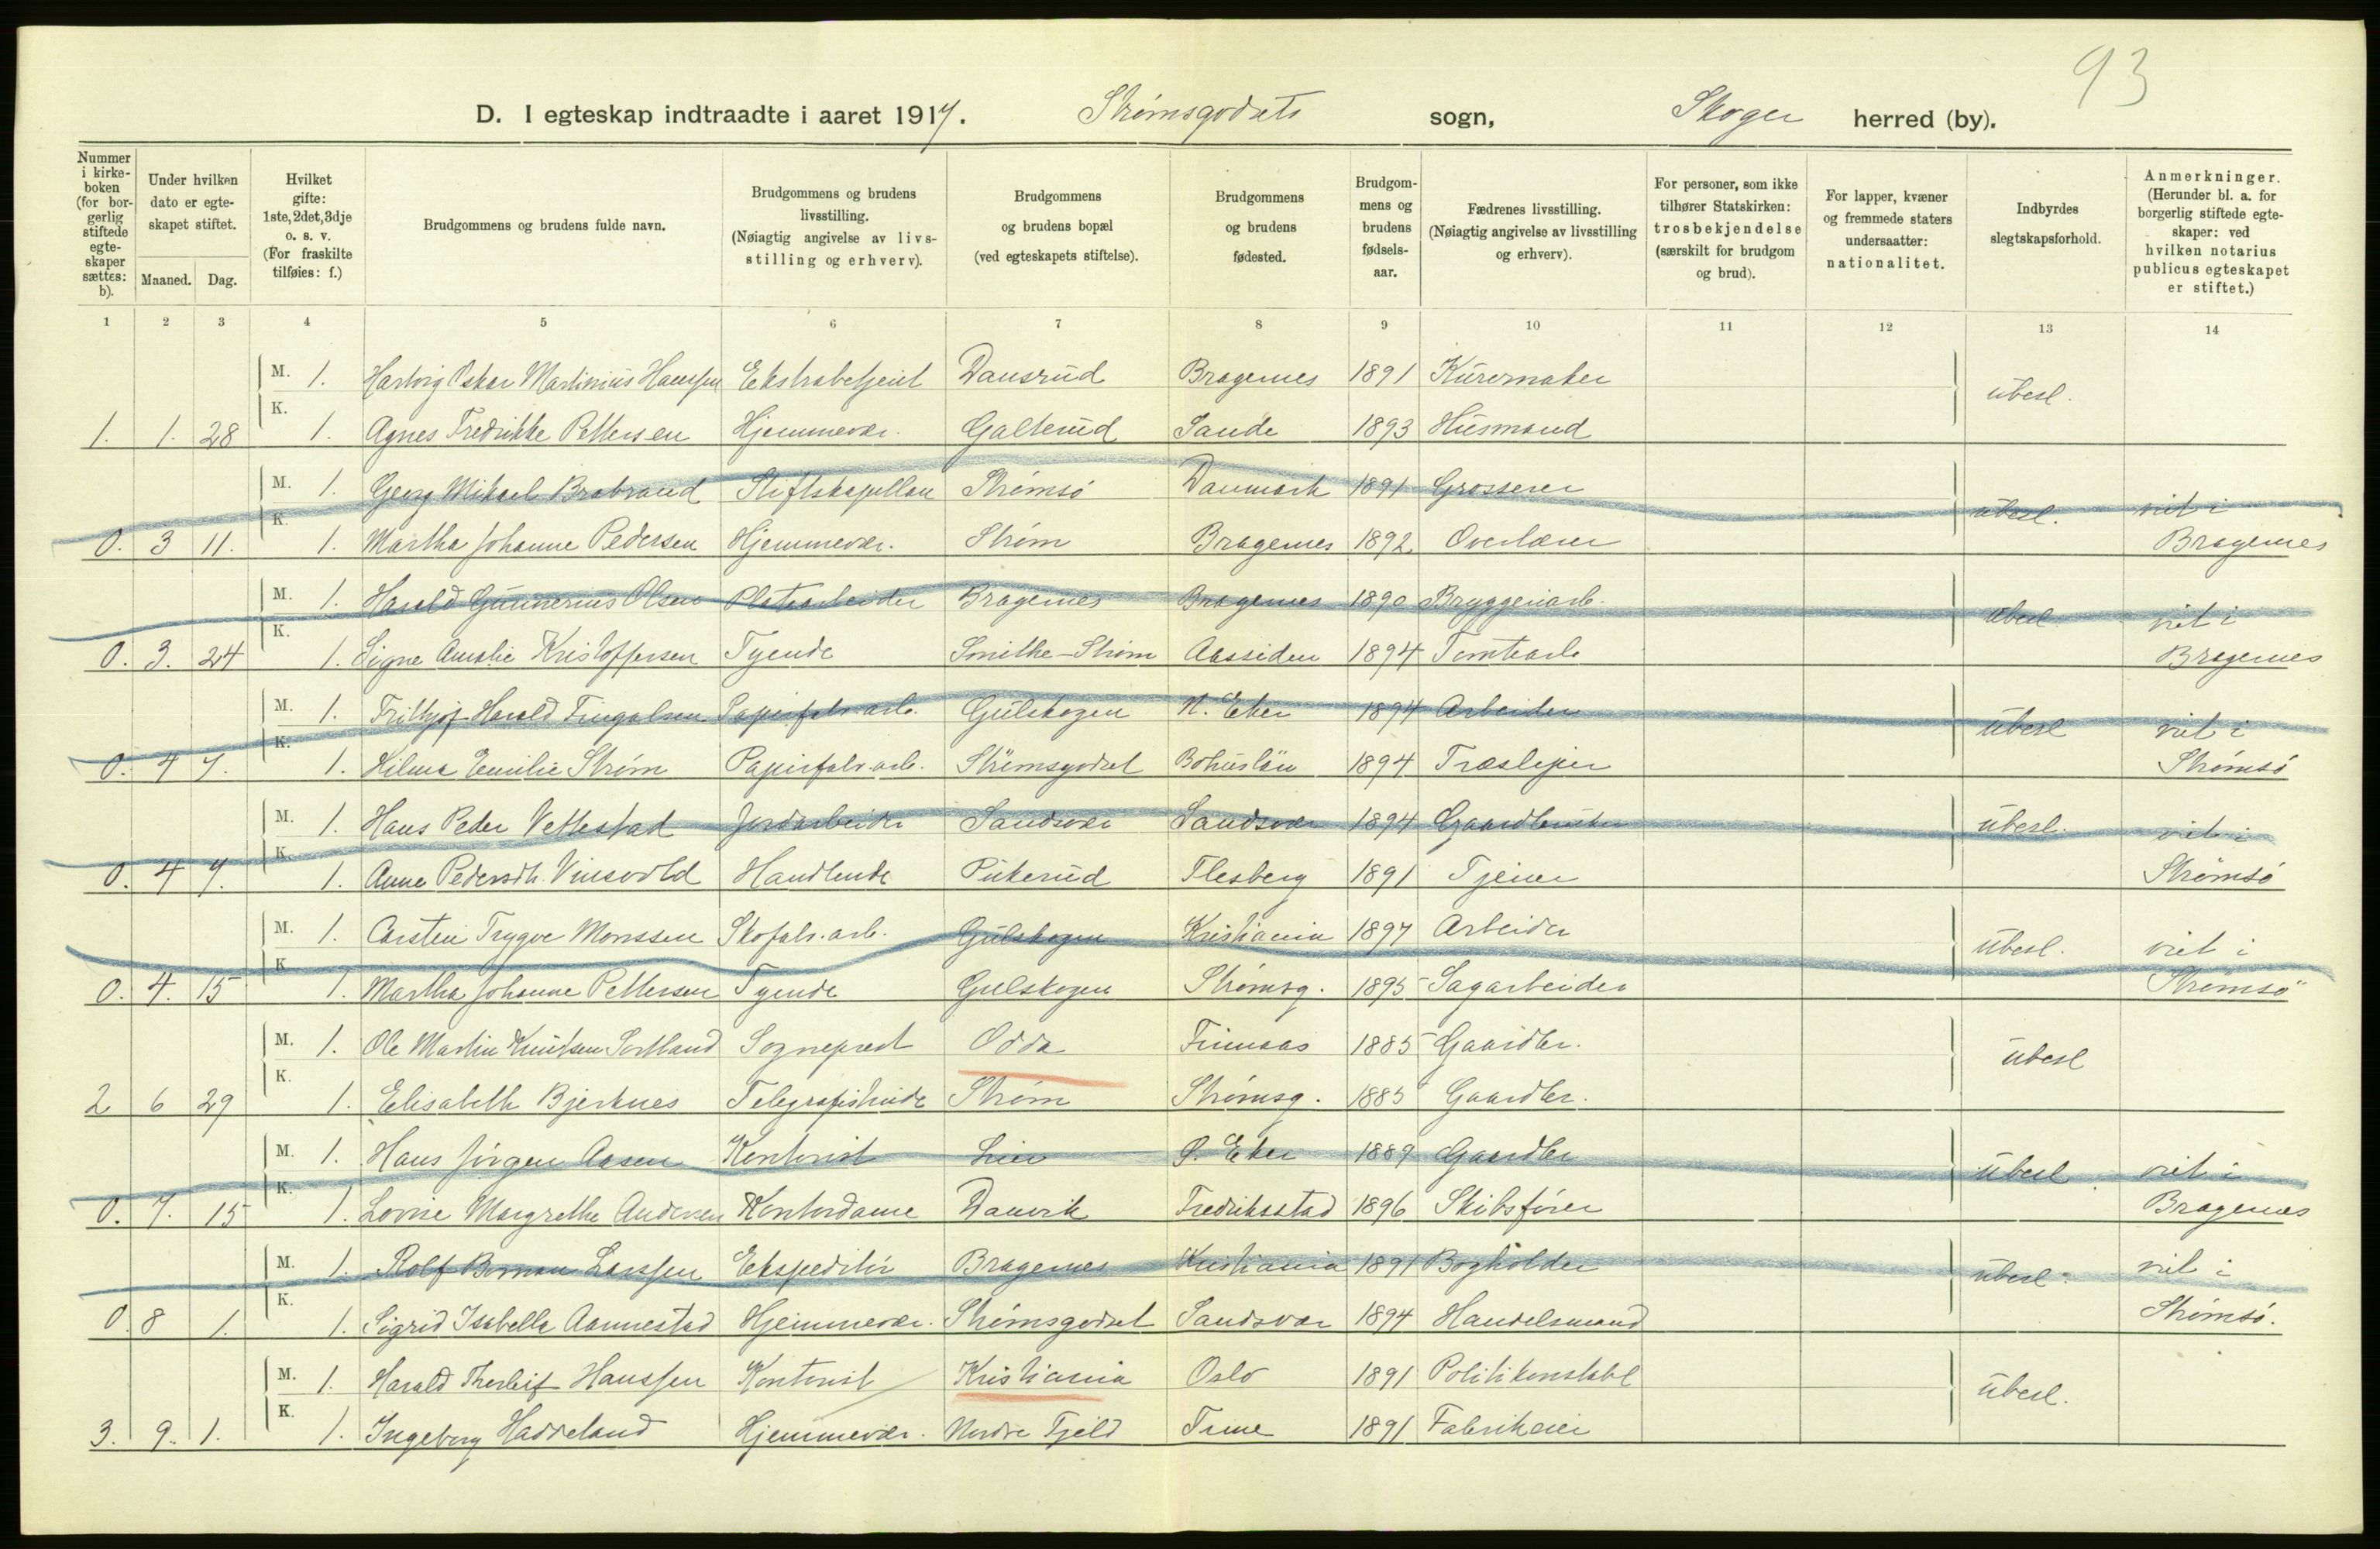 93
D. I egteskap indtraadte i aaret 1917. Strømsgodsets sogn, Skoger herred (by).
Nummer i kirke-boken (for bor-gerlig stiftede egte-skaper sættes: b). Under hvilken dato er egte-skapet stiftet. Maaned. Dag. Hvilket gifte: 1ste, 2det, 3dje o. s. v. (For fraskilte tilføies: f.) Brudgommens og brudens fulde navn. Brudgommens og brudens livsstilling. (Nøiagtig angivelse av livs-stilling og erhverv). Brudgommens og brudens bopæl (ved egteskapets stiftelse). Brudgommens og brudens fødested. Brudgom-mens og brudens fødsels-aar. Fædrenes livsstilling. (Nøiagtig angivelse av livsstilling og erhverv). For personer, som ikke tilhører Statskirken: trosbekjendelse (særskilt for brudgom og brud). For lapper, kvæner og fremmede staters undersaatter: nationalitet. Indbyrdes slegtskapsforhold. Anmerkninger. (Herunder bl. a. for borgerlig stiftede egte-skaper: ved hvilken notarius publicus egteskapet er stiftet.)
1 2 3 4 5 6 7 8 9 10 11 12 13 14
M. 1. Hartvig Oskar Martinius Hanssen Ekstrabetjent Dansrud Bragernes 1891 Kurvmaker ubesl.
1. 1. 28 K. 1. Agnes Fredrikke Pettersen Hjemmevær. Galterud Sande 1893 Husmand
M. 1. Georg Mikael Brabrand Stiftskapellan Strømsø Danmark 1891 Grosserer ubesl. viet i
0. 3 11. K. 1. Martha Johanne Pedersen Hjemmevær. Strøm Bragernes 1892 Overlærer Bragernes
M. 1. Harald Gunnerius Olsen Platearbeider Bragernes Bragernes 1890 Bryggeriarb. ubesl. viet i
0. 3. 24 K. 1. Signe Amalie Kristoffersen Tyende Smithe-Strøm Aassiden 1894 Tomtearb Bragernes
M. 1. Frithjof Harald Fingalsen Papirfabr.arb. Gulskogen N. Eker 1894 Arbeider ubesl viet i
0. 4 7. K. 1. Hilma Emilie Strøm Papirfabr.arb. Strømsgodset Bohuslän 1894 Træsliper Strømsø
M. 1. Hans Peder Vettestad Jordarbeider Sandsvær Sandsvær 1894 Gaardbruker ubesl. viet i
0. 4 7. K. 1. Anne Pedersdt. Vinsvold Handlende Pukerud Flesberg 1891 Tjener Strømsø
M. 1. Carsten Trygve Monssen Skofabr.arb. Gulskogen Kristiania 1897 Arbeider ubesl. viet i
0. 4. 15 K 1. Martha Johanne Pettersen Tyende Gulskogen Strømsg. 1895 Sagarbeider Strømsø
M. 1. Ole Martin Knutsen Sortland Sogneprest Odda Finnaas 1885 Gaardbr. ubesl
2 6 29 K. 1. Elisabeth Bjerknes Telegrafistinde Strøm Strømsg. 1885 Gaardbr.
M. 1. Hans Jørgen Aasen Kontorist Lier Ø. Eker 1889 Gaardbr ubesl viet i
0. 7. 15 K. 1. Lovise Margrethe Andersen Kontordame Danvik Fredriksstad 1896 Skibsfører Bragernes
M. 1. Rolf Larssen Ekspeditør Bragernes Kristiania 1891 Bogholder ubesl. viet i
0. 8 1. K. 1. Sigrid Isabella Aannestad Hjemmevær. Strømsgodset Sandsvær 1894 Handelsmand Strømsø.
M. 1. Harald Thorleif Hanssen Kontorist Kristiania Oslo 1891 Politikonstabel ubesl.
3. 9. 1. K. 1. Ingeborg Haddeland Hjemmevær. Nordre Fjeld Time 1891 Fabrikeier